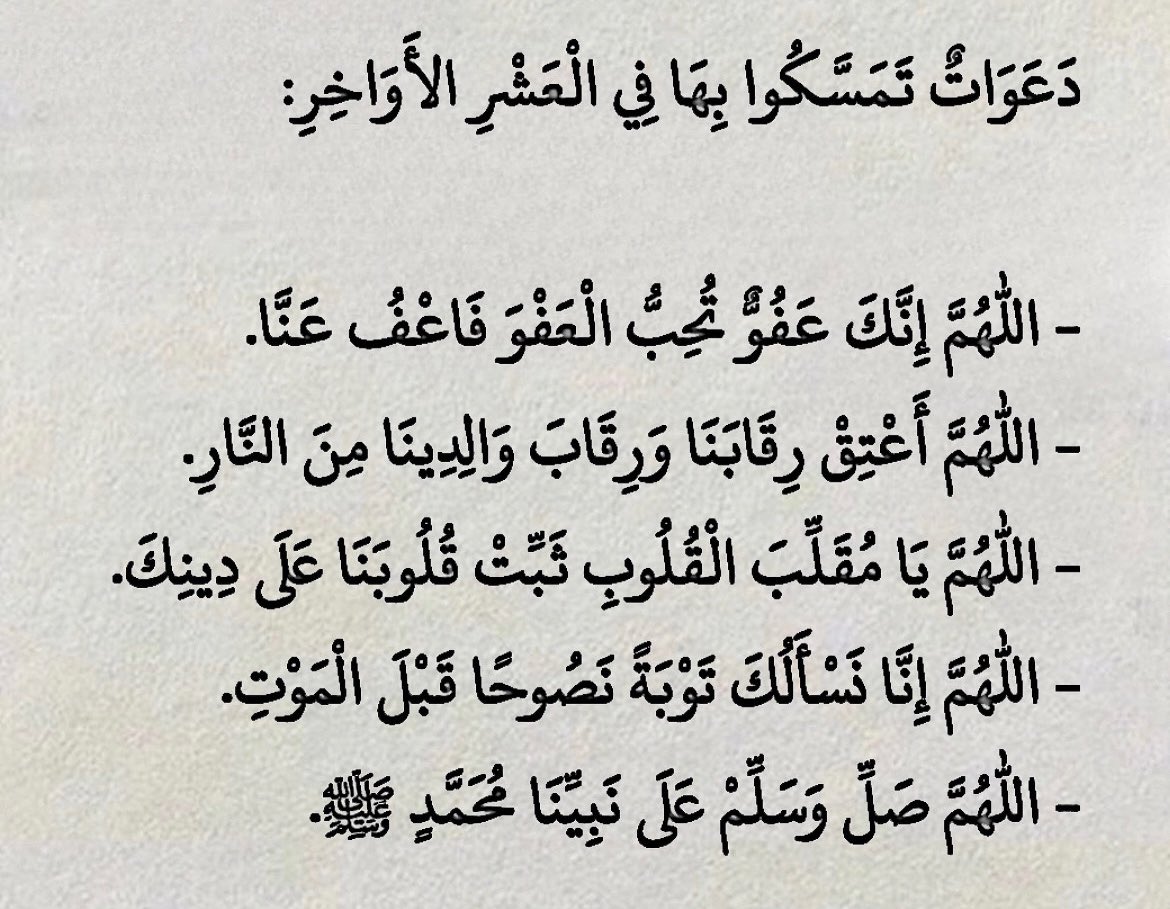 دَعَوَاتٌ تَمَسَّكُوا بِهَا فِي الْعَشْرِ الأَوَاخِرِ:
- اللَّهُمَّ إِنَّكَ عَفُوٌّ تُحِبُّ الْعَفْوَ فَاعْفُ عَنَّا.
- اللَّهُمَّ أَعْتِقْ رِقَابَنَا وَرِقَابَ وَالِدِينَا مِنَ النَّارِ.
- اللَّهُمَّ يَا مُقَلِّبَ الْقُلُوبِ ثَبِّتْ قُلُوبَنَا عَلَى دِينِكَ.
- اللَّهُمَّ إِنَّا نَسْأَلُكَ تَوْبَةً نَصُوحًا قَبْلَ الْمَوْتِ.
- اللَّهُمَّ صَلِّ وَسَلِّمْ عَلَى نَبِيِّنَا مُحَمَّدٍ ﷺ.